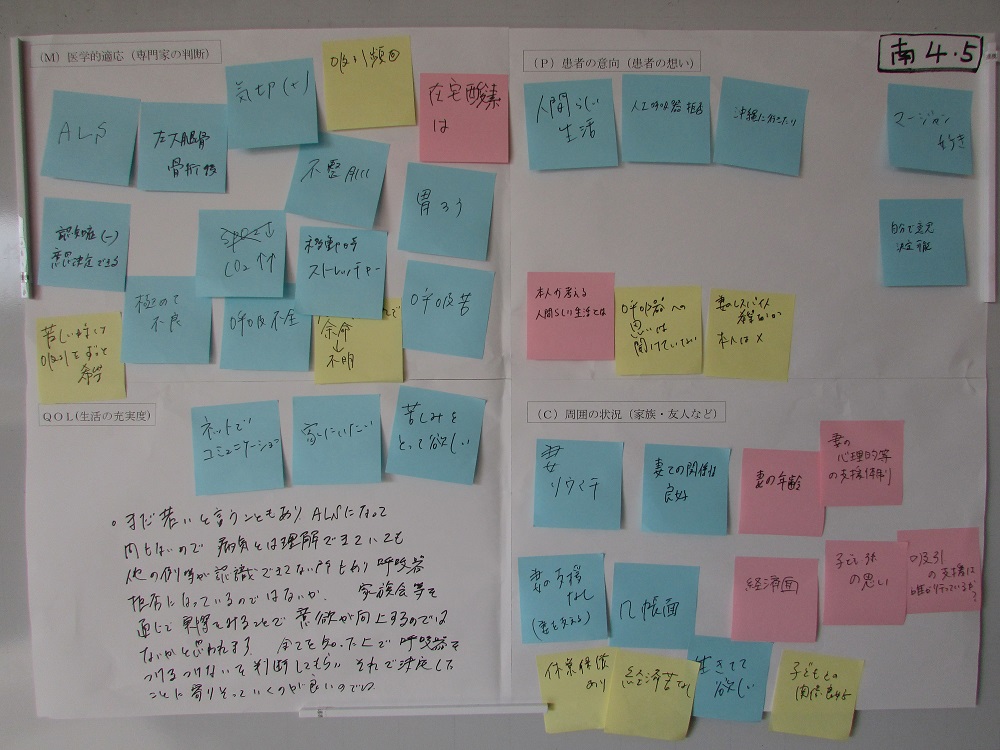 南4・5
(M) 医学的適応（専門家の判断）
ALS
左大腿骨
骨折後
気切(+)
吸引頻回
在宅酸素
は
不整脈
胃ろう
認知症(-)
意思決定できる
SPO2↓
CO2↑↑
移動時
ストレッチャー
極めて
不良
呼吸不全
余命
↓
不明
呼吸苦
苦しい
吸引をずっと
希望
(P) 患者の意向（患者の想い）
人間らしい
生活
人工呼吸器拒否
沖縄に行きたい
マージャン
好き
自分で意思
決定可能
本人が考える
人間らしい生活とは
呼吸器への
思いは
聞けていない
妻のレスパイト
本人は×
QOL(生活の充実度)
ネットで
コミュニケーション
家にいたい
苦しみを
とって欲しい
。まだ若いと言うこともあり ALSになって
間もないので 病気とは理解できていても
他の例等が認識できてない所もあり 呼吸器
拒否になっているのではないか。 家族会等を
通じて 実際をみることで 意欲が向上するのでは
ないかと思われます。 全てを知った上で 呼吸器を
つけるつけないを判断してもらい それで決定した
ことに寄りそっていくのが良いのでは
(C) 周囲の状況（家族・友人など）
妻
リウマチ
妻との関係は
良好
妻の年齢
妻の
心理的等
の支援体制
妻の支援
なし
(妻を支える)
几帳面
経済面
子ども
の思い
吸引
の支援は
誰が行っているか?
休業保償
あり
経済苦なし
生きて
欲しい
子どもとの
関係良好